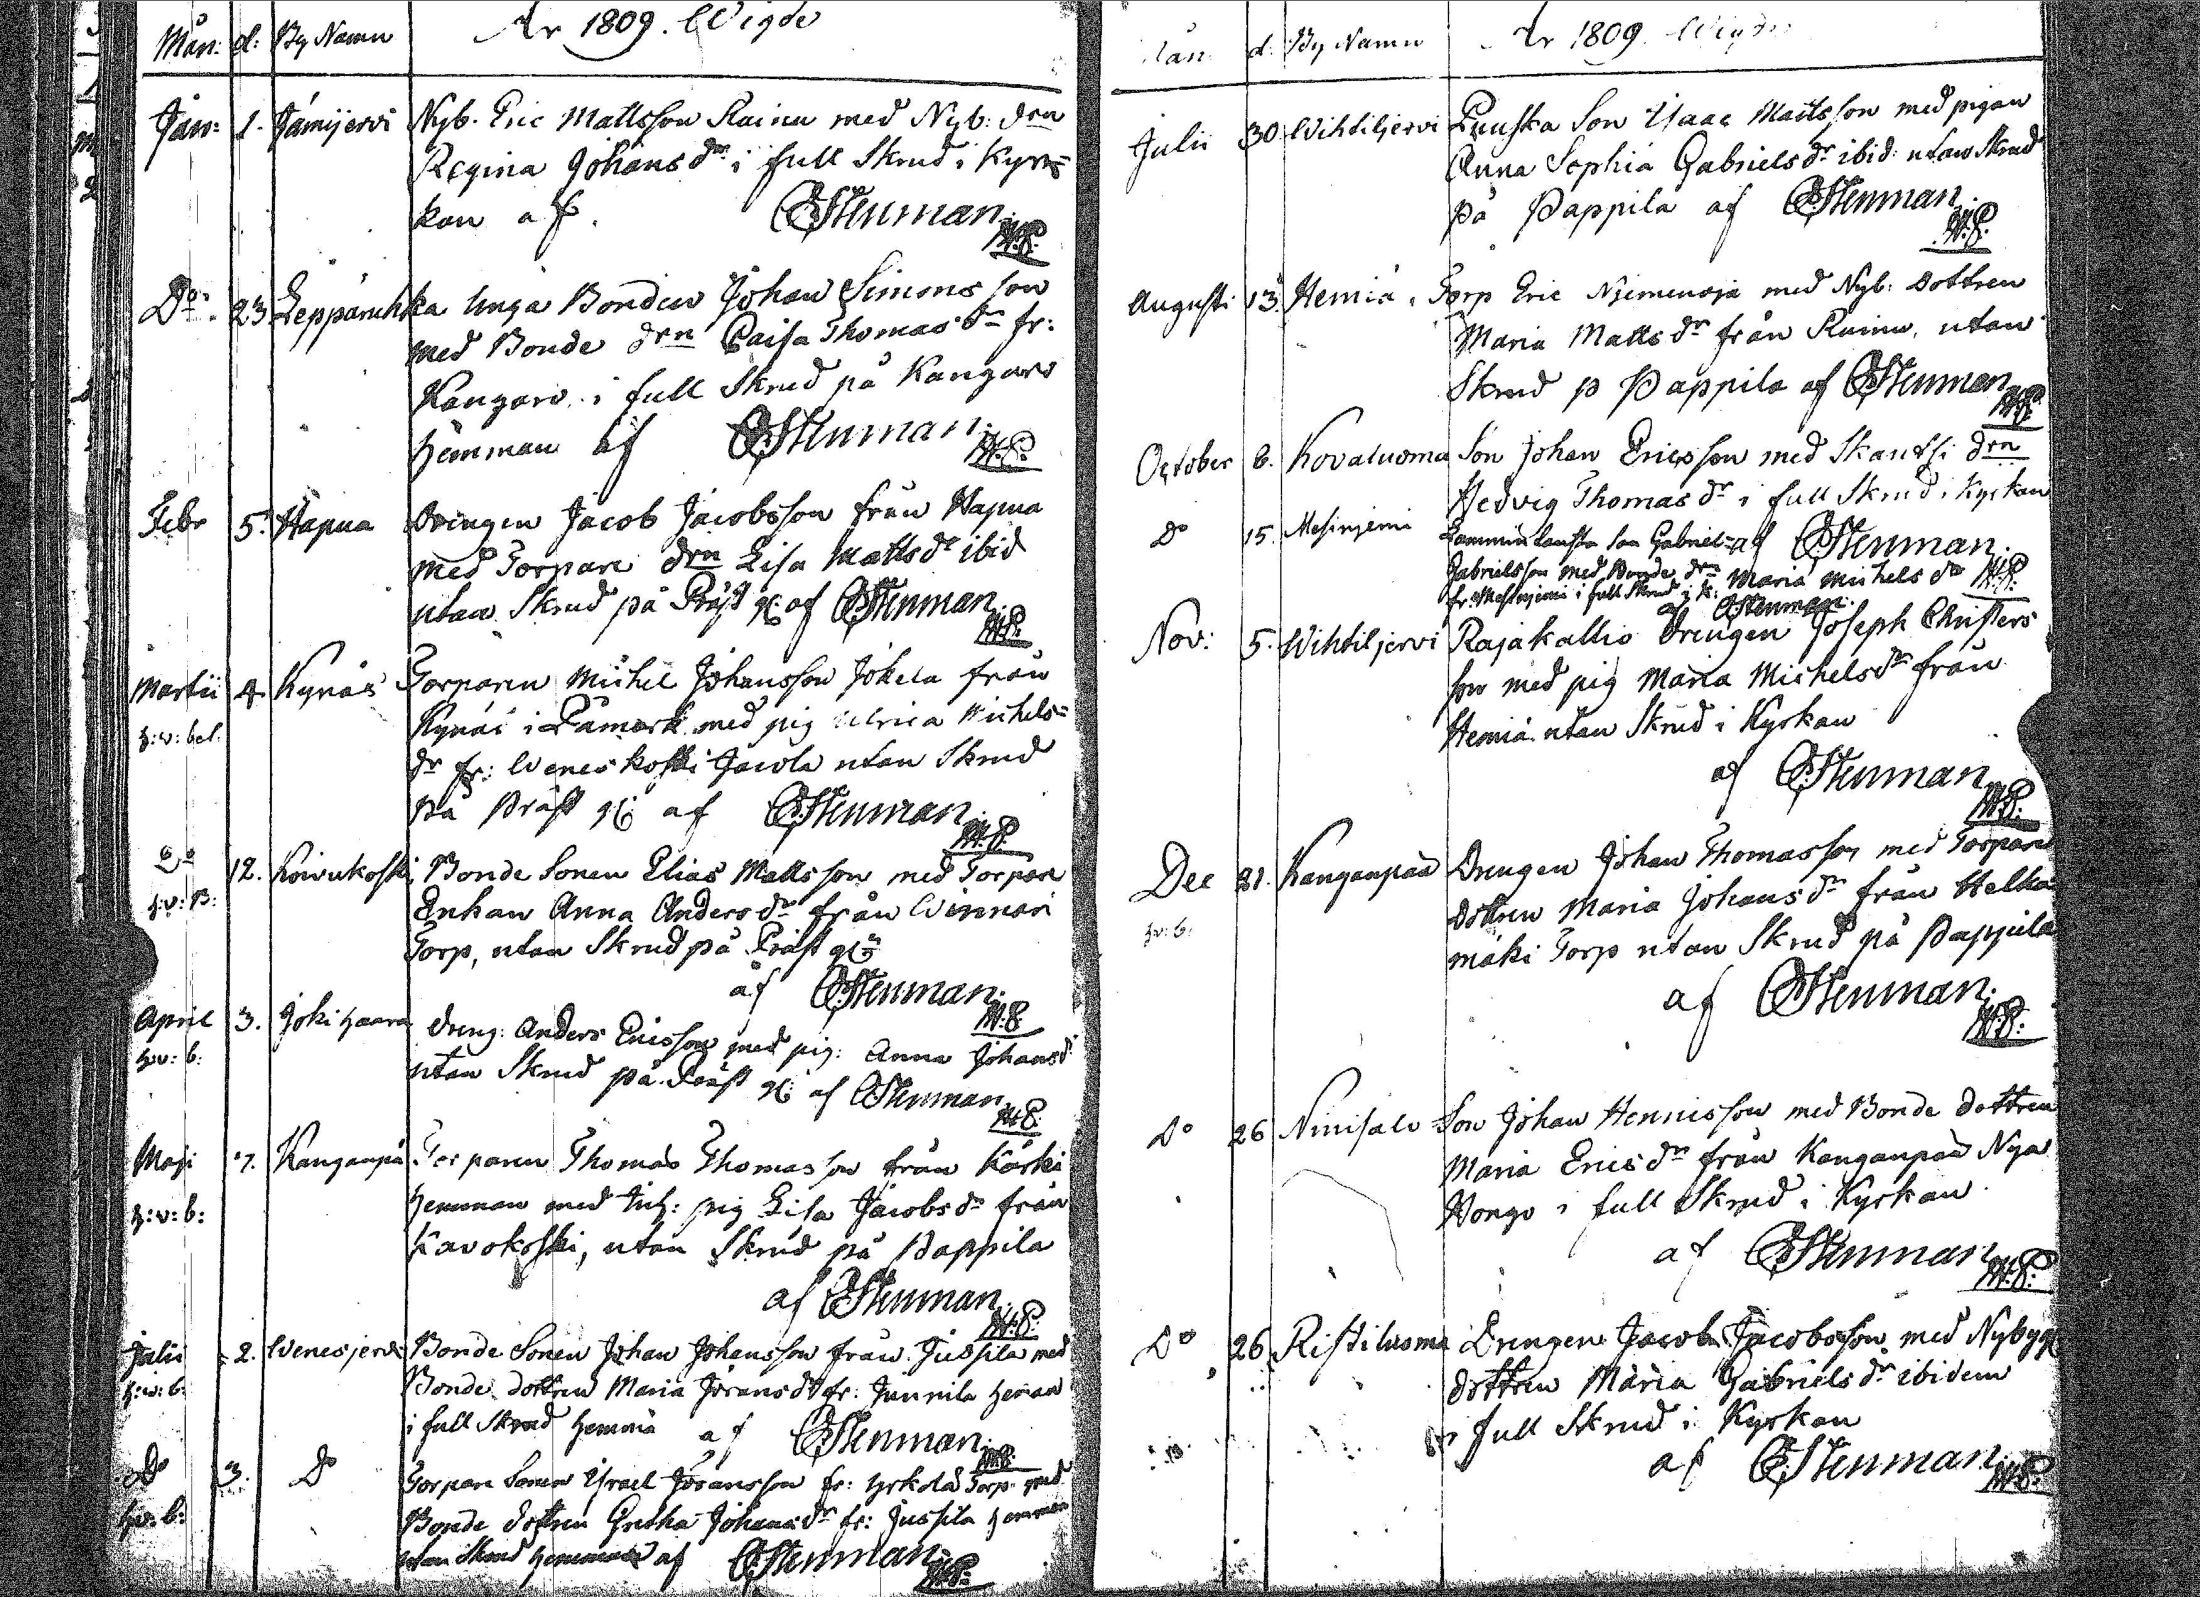 Mån: d: By Namn År 1809. Wigde
Jan: 1. Jämijervi Nyb. Eric Mattsson Rainu med Nyb: drn
Regina Johans dr i full Skrud i Kyrc=
kan af. Stenman
M.P.
Do 23. Leppäruhka Unga Bonden Johan Simons son
med Bonde drn Caisa Thomas dr fr:
Kangars i full Skrud på Kangars
hemman af Stenman
M.P.
Febr 5. Hapua Drengen Jacob Jacobsson från Hapua
med Torpare drn Lisa Matts dr ibid
utan Skrud på Präst g: af Stenman
M.P.
Martii 4 Kynäs Torparen Michel Johansson Jokela från
h:v: bel. Kynäs i Påmark med pig Ulrica Michels=
dr fr: Weneskoski Jacola utan Skrud
på Präst g: af Stenman
M.P.
Do 12. Koivukoski Bonde Sonen Elias Matts son med Torpare
h:v: B: Enkan Anna Anders dr från Winnari
Torp, utan Skrud på Präst g:
af Stenman
M.P.
April 3. Jokihaara dreng: Anders Ericsson med pig: Anna Johansd:
h:v: b: utan Skrud på Präst g: af Stenman
M.P.
Maji 7. Kanganpä Torparen Thomas Thomasson från Kärki
h:v: b: hemman med pig Lisa Jacobs dr från
Kavokoski, utan Skrud på Pappila
af Stenman
M.P.
Julii 2. Wenesjervi Bonde Sonen Johan Johansson från Jussila med
h:v: b: Bonde dottren Maria Jörans dr fr: Junnila heman
i full Skrud hemma af Stenman
M.P.
Do 3. Do Torpare Sonen Israel Jöransson fr: Yrkölä Torp med
h:v: b: Bonde dottren Gretha Johans dr fr: Jussila hemman
utan Skrud af Stenman
M.P.
Mån. d. By Namn År 1809. Wigde
Julii 30 Wihtiljervi Puuska Son Isaac Mattsson med pigan
Anna Sophia Gabriels dr ibid: utan Skrud
på Pappila af Stenman
M.P.
Augusti 13. Hemiä Torp Eric Niemenoja med Nyb: dottren
Maria Matts dr från Rainu, utan
Skrud p Pappila af Stenman
M.P.
October 6. Kovaluoma Son Johan Ericsson med Skantsi drn
Hedvig Thomas dr i full Skrud i Kyrkan
af Stenman
M.P.
Do 15. Mesinjemi son Gabriel
Gabrielsson med Bonde drn Maria Michels dr
fr: Mesinjemi i full Skrud i K:
af Stenman
Nov: 5. Wihtiljervi Rajakallio Drengen Joseph Christers
son med pig Maria Michelsdr från
Hemiä utan Skrud i Kyrkan
af Stenman
M.P.
Dec 21. Kanganpää Drengen Johan Thomasson med Torpare
h:v: b: dottren Maria Johans dr från Helka=
mäki Torp utan Skrud på Pappila
af Stenman
M.P.
Do 26 Niinisalo Son Johan Henricsson med Bonde dottren
Maria Erics dr från Kanganpää Nya
Hongo i full Skrud i Kyrkan
af Stenman
M.P.
Do 26 Ristiluoma Drengen Jacob Jacobsson med Nybygg
dottren Maria Gabriels dr ibidem
i full Skrud i Kyrkan
af Stenman
M.P.